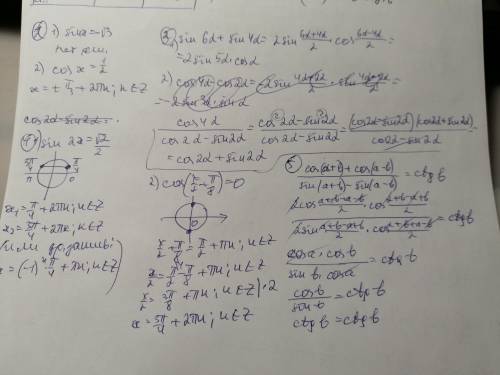 ② 1) sin x = √3
нет реш.
2) cos x = 1/2
x = ± π/3 + 2πn; n ∈ Z
cos2d - sin2d
1) sin 2x = √2/2
3π/4 π/4
π 0
x₁ = π/4 + 2πn; n ∈ Z
x₂ = 3π/4 + 2πn; n ∈ Z
x = (-1)ⁿ π/4 + πn; n ∈ Z
③
1) sin 6d + sin 4d = 2 sin (6d+4d)/2 · cos (6d-4d)/2 =
= 2 sin 5d · cos d
2) cos 4d - cos 2d = -2 sin (4d+2d)/2 · sin (4d-2d)/2 =
= -2 sin 3d · sin d
cos 4d / (cos 2d - sin 2d) = (cos² 2d - sin² 2d) / (cos 2d - sin 2d) = (cos 2d - sin 2d)(cos 2d + sin 2d) / (cos 2d - sin 2d) =
= cos 2d + sin 2d
2) cos (x/2 + π/8) = 0
0
x/2 - π/8 = π/2 + πn; n ∈ Z
x/2 = π/2 + π/8 + πn; n ∈ Z
x/2 = 5π/8 + πn; n ∈ Z | · 2
x = 5π/4 + 2πn; n ∈ Z
⑤
(cos(a+b) + cos(a-b)) / (sin(a+b) - sin(a-b)) = ctg b
(2cos (a+b+a-b)/2 · cos (a+b-a+b)/2) / (2 sin (a+b-a+b)/2 · cos (a+b+a-b)/2) = ctg b
(cos a · cos b) / (sin b · cos a) = ctg b
cos b / sin b = ctg b
ctg b = ctg b